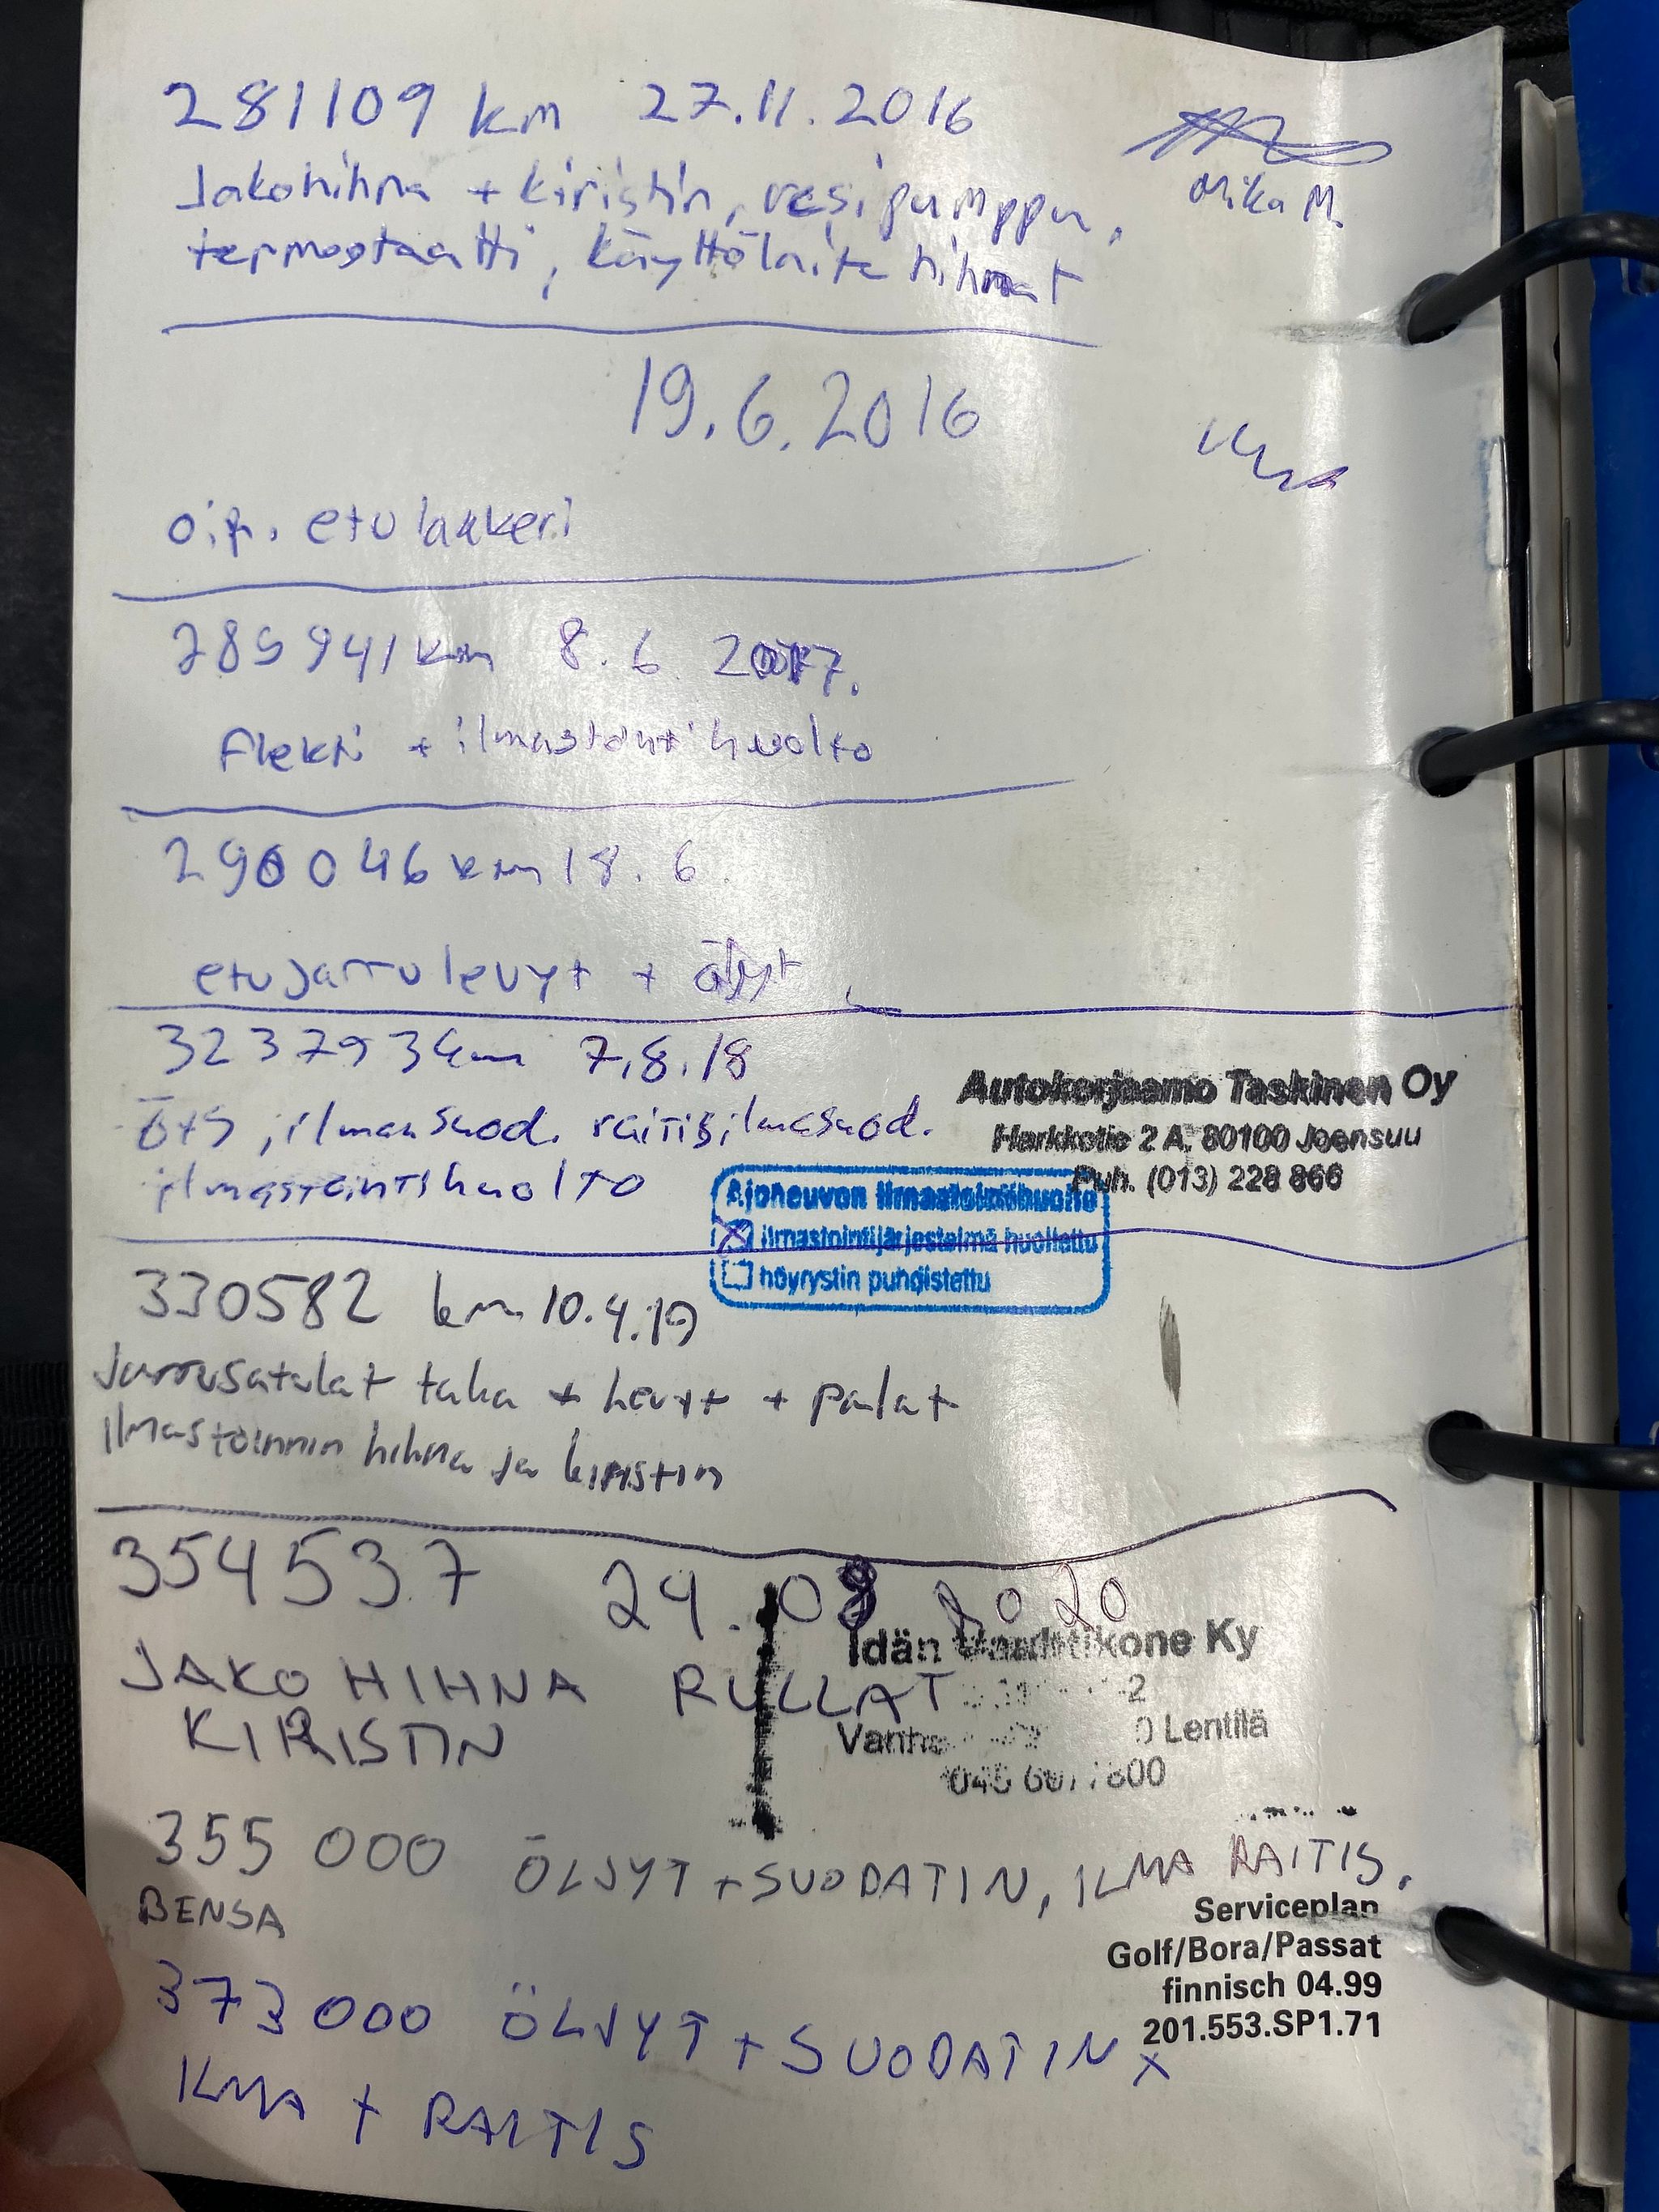 281109 km 27.11.2016
Jakohihna + kiristin, vesipumppu,
Mika M.
termostaatti, käyttölaite hihnat
19.6.2016
etulaakeri
289941 km 8.6 2017.
flekti + ilmastointihuolto
290046 km 18.6.
etujarrulevyt + öljyt
323793 km 7.8.18
Autokorjaamo Taskinen Oy
Ö+S, ilmansuod. raitisilmasuod.
Harkkotie 2 A, 80100 Joensuu
ilmastointihuolto
Puh. (013) 228 866
Ajoneuvon ilmastointihuolto
ilmastointijärjestelmä huollettu
höyrystin puhdistettu
330582 km 10.4.19
Jarrusatulat taka + levyt + palat
ilmastoinnin hihna ja kiristin
354537 24.08 2020
Idän Ky
JAKOHIHNA RULLAT
KIRISTIN
Lentilä
355 000 ÖLJYT + SUODATIN, ILMA RAITIS,
BENSA
Serviceplan
Golf/Bora/Passat
finnisch 04.99
201.553.SP1.71
373 000 ÖLJYT + SUODATIN
ILMA + RAITIS